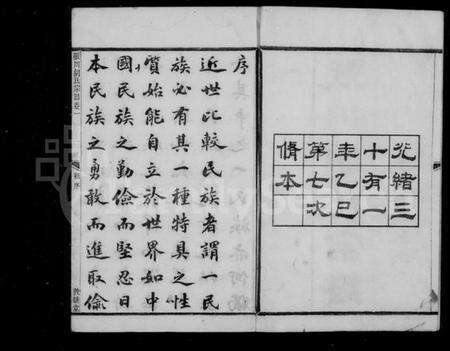 光緒三
十有一
年乙巳
第七次
脩本
序
近世比較民族者謂一民
族必有其一種特具之性
質始能自立於世界如中
國民族之勤儉而堅忍日
本民族之勇敢而進取儉